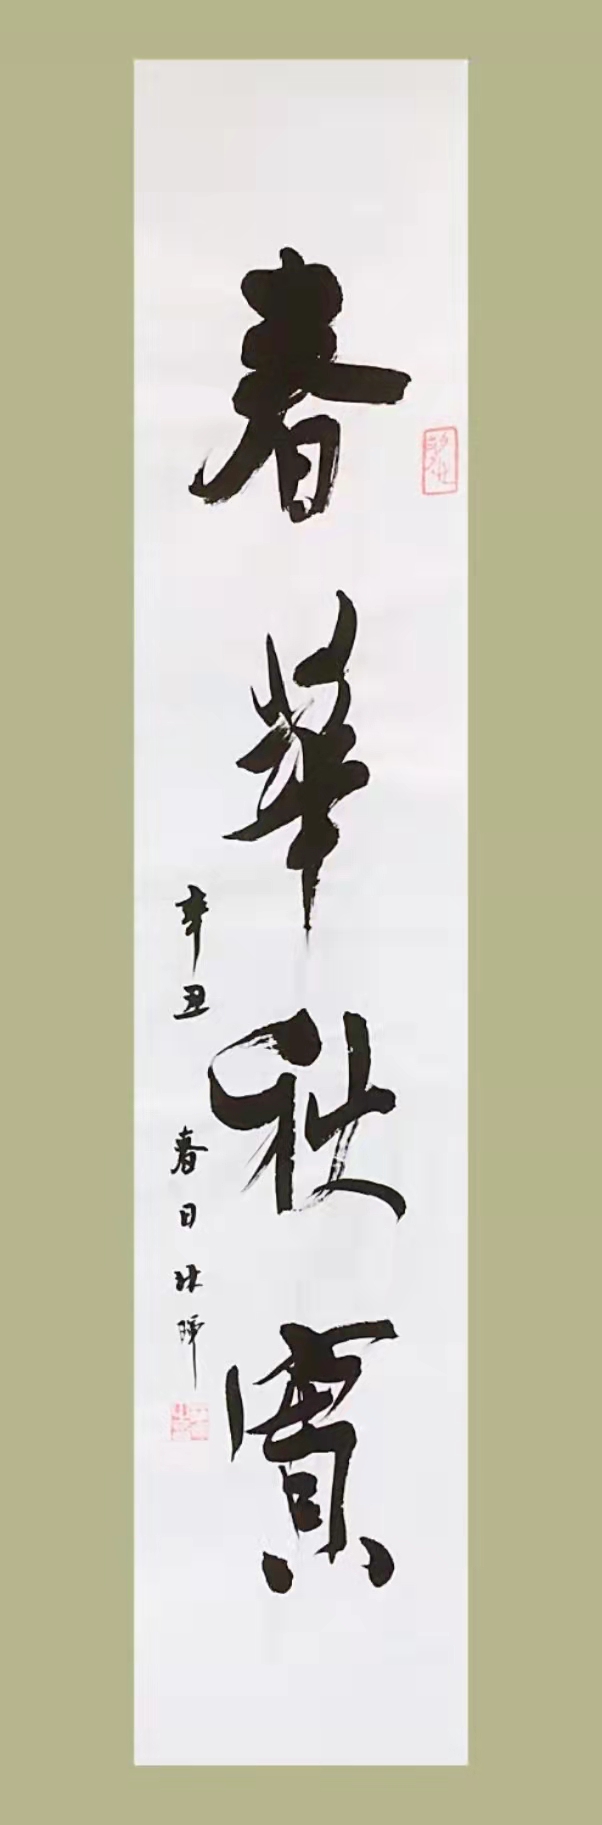 春華秋實
辛丑春日林暉